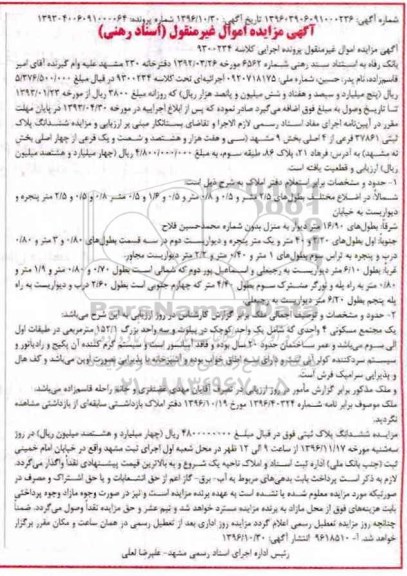 شماره آگهی: ۱۳۹۶۰۳۹۰۶۰۹۱۰۰۰۲۳۶ تاریخ آگهی: ۱۳۹۶/۱۰/۳۰ شماره پرونده: ۱۳۹۳۰۴۰۰۶۰۹۱۰۰۰۰۶۴
آگهی مزایده اموال غیرمنقول (اسناد رهنی)
آگهی مزایده اموال غیرمنقول پرونده اجرایی کلاسه ۹۳۰۰۲۳۴
بانک رفاه به استناد سند رهنی شماره ۶۵۶۲ مورخه ۱۳۹۲/۰۳/۲۶ دفترخانه ۲۳۰ مشهد علیه وام گیرنده آقای امیر
قاسم‌زاده، نام پدر: حسین، شماره ملی: ۰۹۲۰۷۱۸۱۷۵ اجرائیه‌ای تحت کلاسه ۹۳۰۰۲۳۴ در قبال مبلغ ۵/۳۷۶/۵۰۰/۰۰۰
ریال (پنج میلیارد و سیصد و هفتاد و شش میلیون و پانصد هزار ریال) که روزانه مبلغ ۳۸۰۰ ریال از مورخه ۱۳۹۳/۰۱/۲۳
تا تاریخ وصول به مبلغ فوق اضافه می‌گردد صادر نموده که پس از ابلاغ اجراییه در مورخه ۱۳۹۳/۰۴/۳۰ در پایان مهلت
مقرر در آیین‌نامه اجرای مفاد اسناد رسمی لازم الاجرا و تقاضای بستانکار مبنی بر ارزیابی و مزایده ششدانگ پلاک
ثبتی ۳۷۸۶۱ فرعی از ۴ اصلی بخش ۹ مشهد (سی و هفت هزار و هشتصد و شصت و یک فرعی از چهار اصلی بخش
نه مشهد) به آدرس: فرهاد ۲۱، پلاک ۸۶، طبقه سوم، به مبلغ ۴/۸۰۰/۰۰۰/۰۰۰ ریال (چهار میلیارد و هشتصد میلیون
ریال) ارزیابی و قطعیت یافته است.
۱- حدود و مشخصات برابر استعلام دفتر املاک به شرح ذیل است:
شمالاً: در اضلاع مختلف بطول‌های ۲/۵ متر و ۰/۵ و ۰/۸ متر و ۰/۵ و ۱/۶ و ۰/۵ متر ۰/۸ و ۰/۵ و ۲/۵ متر پنجره و
دیواریست به خیابان
شرقاً: بطول‌های ۱۶/۹۰ متر دیوار به منزل بدون شماره محمدحسین فلاح
جنوباً: اول بطول‌های ۳/۲۰ و ۰/۴۰ متر و یک متر پنجره و دیواریست دوم در سه قسمت بطول‌های ۰/۸۰ و ۳ متر و ۰/۸۰
درب و پنجره به تراس سوم بطول‌های ۱ متر و ۰/۴۰ متر و ۲/۲ متر دیواریست مجاور.
غرباً: بطول ۶/۱۰ متر دیواریست به رجبعلی و اسماعیل پوردوم که شمالی است بطول ۰/۷۰ و ۰/۸۰ متر و ۱/۹ متر و
۰/۸۰ متر به راه پله و نورگیر مشترک سوم بطول ۴/۴۰ متر که چهارم جنوبی است بطول ۲/۶۰ متر درب و دیواریست به راه
پله پنجم بطول ۶/۲۰ متر دیواریست به رجبعلی.
۲- حدود و مشخصات و توصیف اجمالی ملک برابر گزارش کارشناس در روز ارزیابی به این شرح می‌باشد:
یک مجتمع مسکونی ۴ واحدی که شامل یک واحد کوچک در پیلوت و سه واحد بزرگ ۱۵۲/۱ مترمربعی در طبقات اول
الی سوم می‌باشد و عمر ساختمان حدود ۲۰ سال بوده و فاقد آسانسور است و سیستم گرم کننده آن پکیج و رادیاتور و
سیستم سردکننده کولر آبی است
و پذیرایی سرامیک فرش است.
و ملک مذکور برابر گزارش مأمور در روز ارزیابی در تصرف آقایان مهدی مستغزی و خانم راحله قاسم‌زاده می‌باشد.
ملک موصوف برابر نامه شماره ۱۳۹۶/۴۰۳۲۴ مورخ ۱۳۹۶/۰۱/۱۹ دفتر املاک بازداشتی سابقه‌ای از بازداشتی مشاهده
نگردید.
مزایده ششدانگ پلاک ثبتی فوق در قبال مبلغ ۴۸۰۰۰۰۰۰۰۰ ریال (چهار میلیارد و هشتصد میلیون ریال) در روز
سه‌شنبه مورخه ۱۳۹۶/۱۱/۱۷ از ساعت ۹ الی ۱۲ ظهر در محل شعبه اول اجرای ثبت مشهد واقع در خیابان امام خمینی
ثبت (جنب بانک ملی) اداره ثبت اسناد و املاک ناحیه یک شروع و به بالاترین قیمت پیشنهادی نقداً واگذار می‌گردد.
لازم به ذکر است پرداخت بابت بدهی‌های مربوط به آب- برق- گاز اعم از حق انشعابات و یا حق اشتراک و مصرف در
صورتیکه مورد مزایده معلوم شده یا نشده است به عهده برنده مزایده است و نیز در صورت وجوه مازاد وجوه پرداختی
بابت هزینه‌های فوق از محل مازاد به برنده مزایده مسترد خواهد شد و نیم عشر و حق مزایده نقداً وصول می‌گردد. ضمناً
چنانچه روز مزایده تعطیل رسمی اعلام گردد مزایده روز اداری بعد از تعطیل رسمی در همان ساعت و مکان مقرر برگزار
خواهد شد. آ- ۹۶۱۸۵۱۰ انتشار آگهی: ۱۳۹۶/۱۰/۳۰
رئیس اداره اجرای اسناد رسمی مشهد- علیرضا لعلی